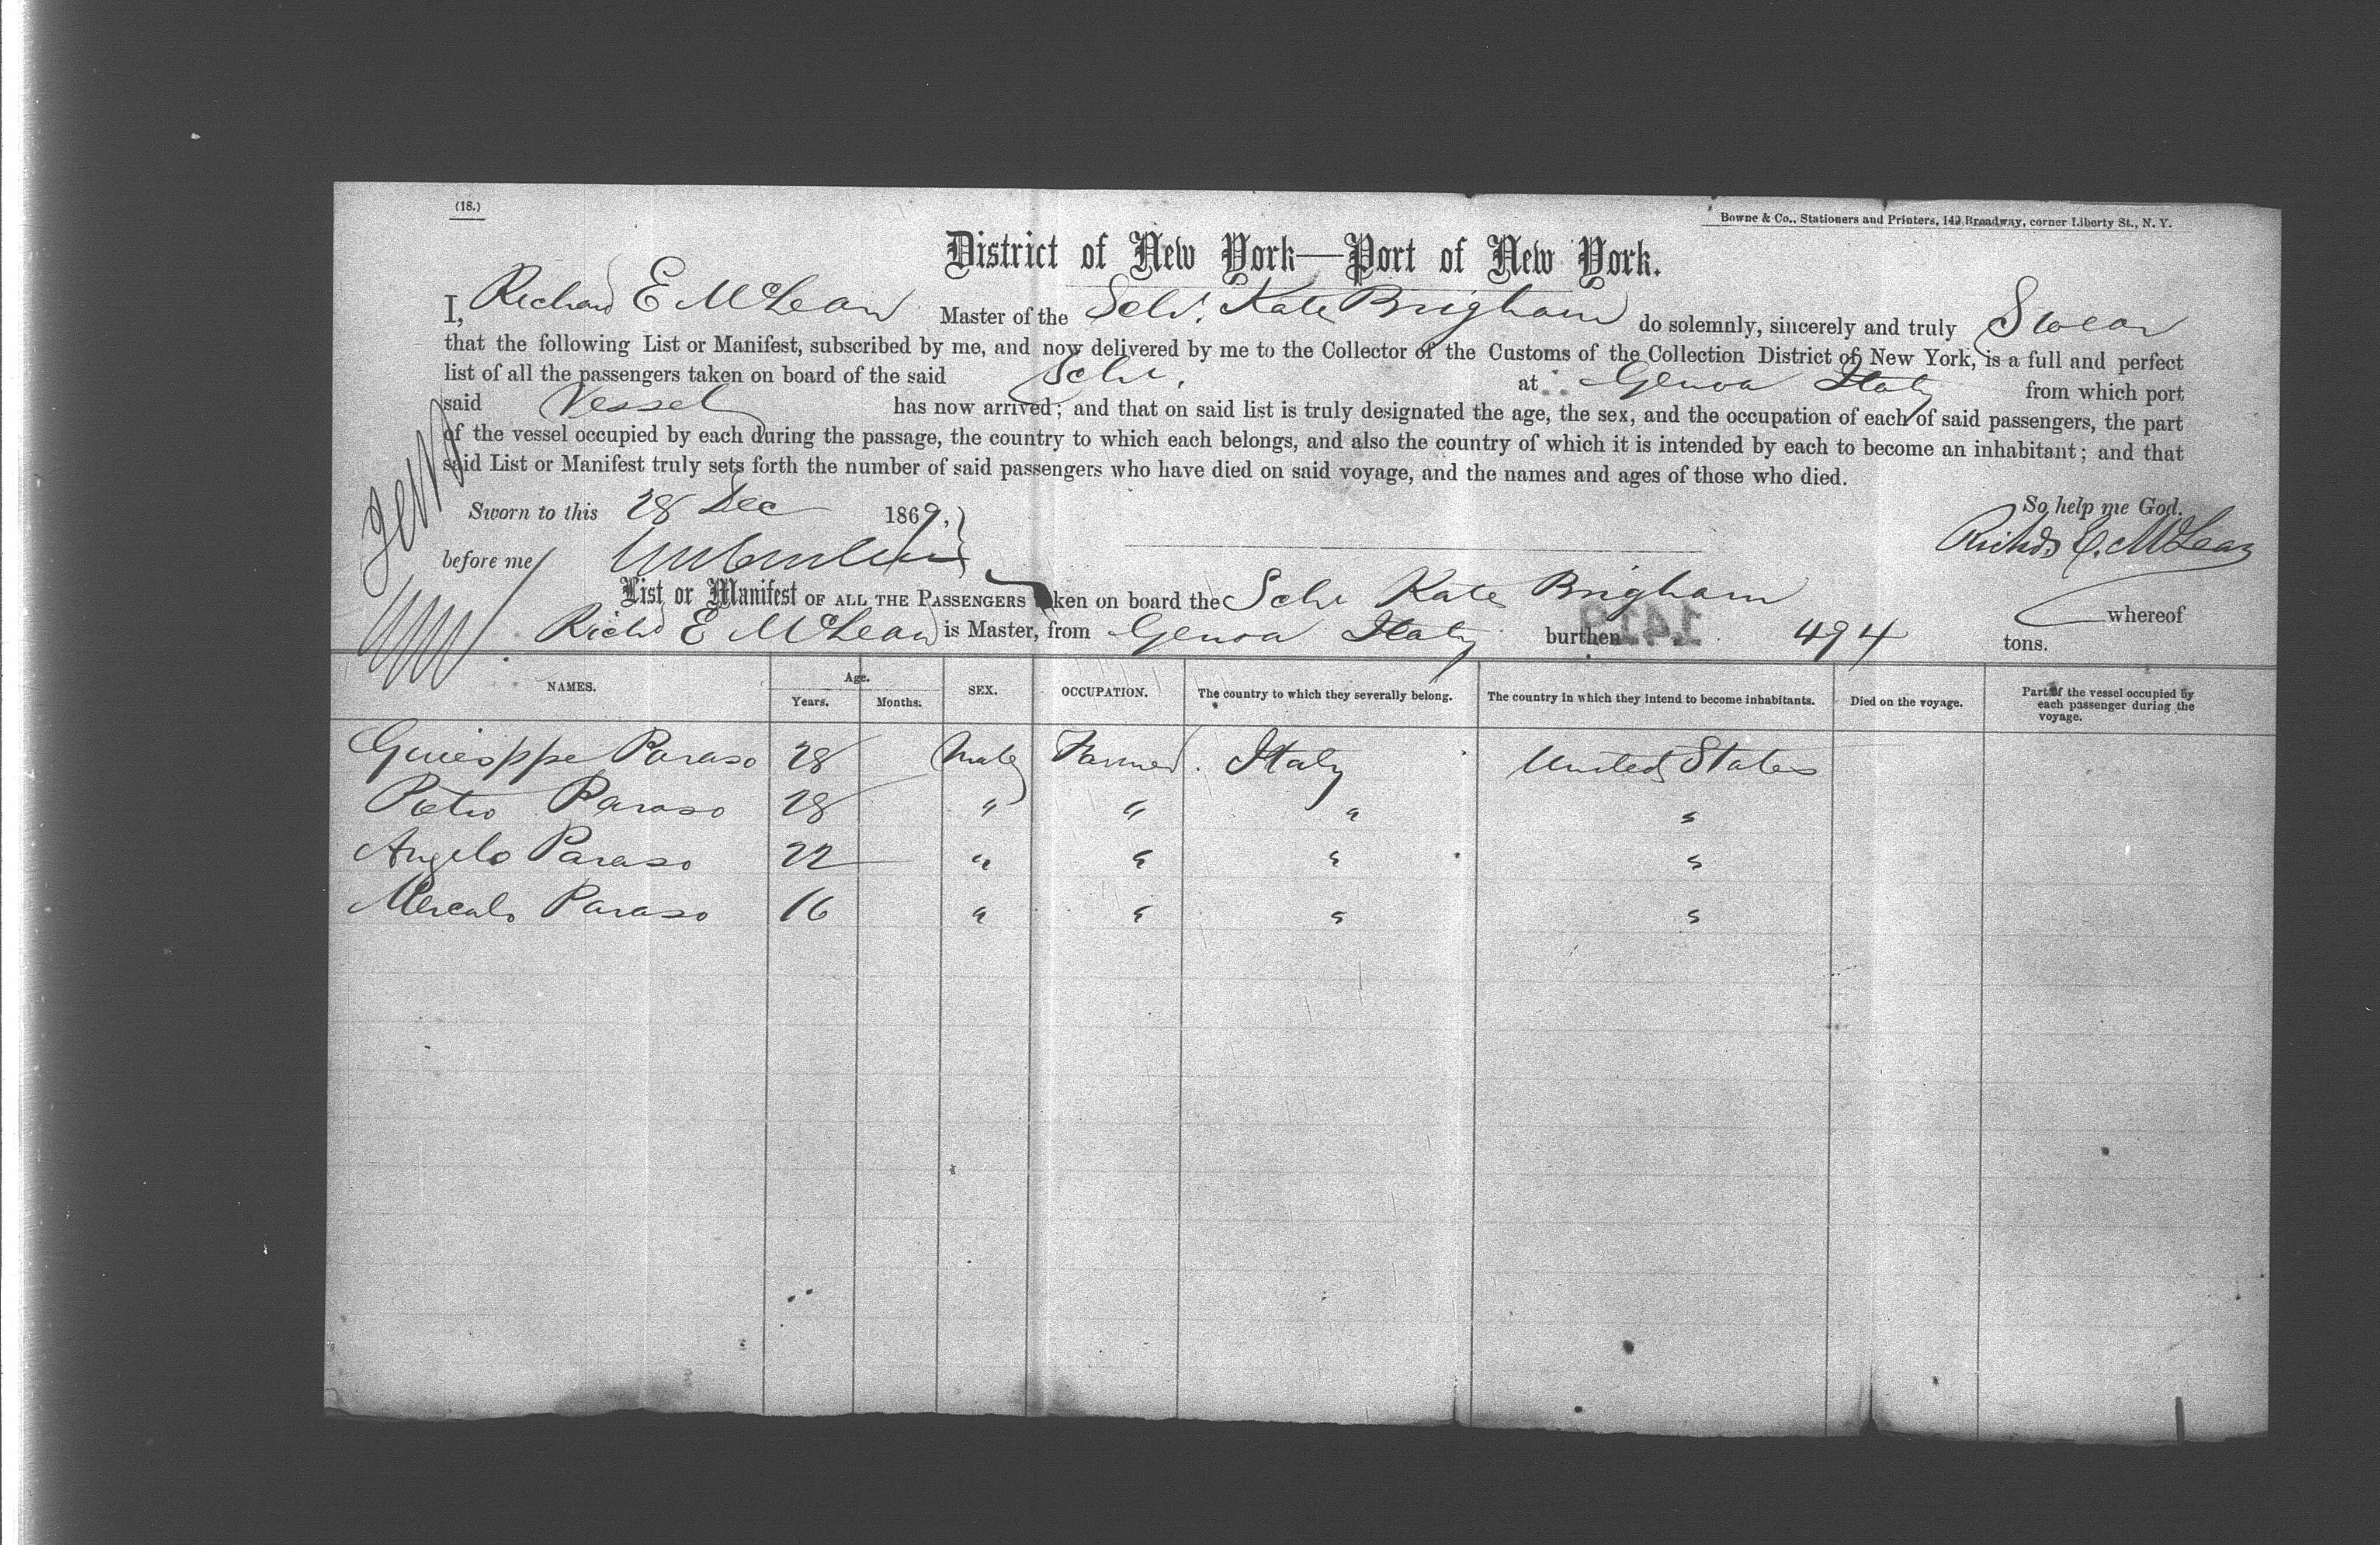 (18.)
Bowne & Co., Stationers and Printers, 149 Broadway, corner Liberty St., N. Y.
District of New York—Port of New York.
I, Richard E McLean Master of the Schr. Kate Brigham do solemnly, sincerely and truly Swear
that the following List or Manifest, subscribed by me, and now delivered by me to the Collector of the Customs of the Collection District of New York, is a full and perfect
list of all the passengers taken on board of the said Schr. at Genoa Italy from which port
said Vessel has now arrived; and that on said list is truly designated the age, the sex, and the occupation of each of said passengers, the part
of the vessel occupied by each during the passage, the country to which each belongs, and also the country of which it is intended by each to become an inhabitant; and that
said List or Manifest truly sets forth the number of said passengers who have died on said voyage, and the names and ages of those who died.
Sworn to this 28 Dec 1869, So help me God.
before me Richd E. McLean
List or Manifest OF ALL THE PASSENGERS taken on board the Schr Kate Brigham whereof
Richd E McLean is Master, from Genoa Italy burthen 494 tons.
1419
NAMES. Age. Years. Months. SEX. OCCUPATION. The country to which they severally belong. The country in which they intend to become inhabitants. Died on the voyage. Part of the vessel occupied by each passenger during the voyage.
Guiesppe Paraso 28 Male Farmer. Italy United States
Pietro Paraso 28 " " " "
Angelo Paraso 22 " " " "
Paraso 16 " " " "